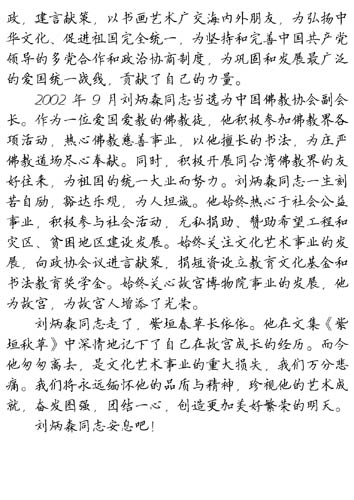 政，建言献策，以书画艺术广交海内外朋友，为弘扬中
华文化、促进祖国完全统一，为坚持和完善中国共产党
领导的多党合作和政治协商制度，为巩固和发展最广泛
的爱国统一战线，贡献了自己的力量。
2002 年 9 月刘炳森同志当选为中国佛教协会副会
长。作为一位爱国爱教的佛教徒，他积极参加佛教界各
项活动，热心佛教慈善事业，以他擅长的书法，为庄严
佛教道场尽心奉献。同时，积极开展同台湾佛教界的友
好往来，为祖国的统一大业而努力。刘炳森同志一生刻
苦自励，豁达乐观，为人坦诚。他始终热心于社会公益
事业，积极参与社会活动，无私捐助、赞助希望工程和
灾区、贫困地区建设发展。始终关注文化艺术事业的发
展，向政协会议进言献策，捐短资设立教育文化基金和
书法教育奖学金。始终关心故宫博物院事业的发展，他
为故宫，为故宫人增添了光荣。
刘炳森同志走了，紫垣春草长依依。他在文集《紫
垣秋草》中深情地记下了自己在故宫成长的经历。而今
他匆匆离去，是文化艺术事业的重大损失，我们万分悲
痛。我们将永远缅怀他的品质与精神，珍视他的艺术成
就，奋发图强，团结一心，创造更加美好繁荣的明天。
刘炳森同志安息吧！